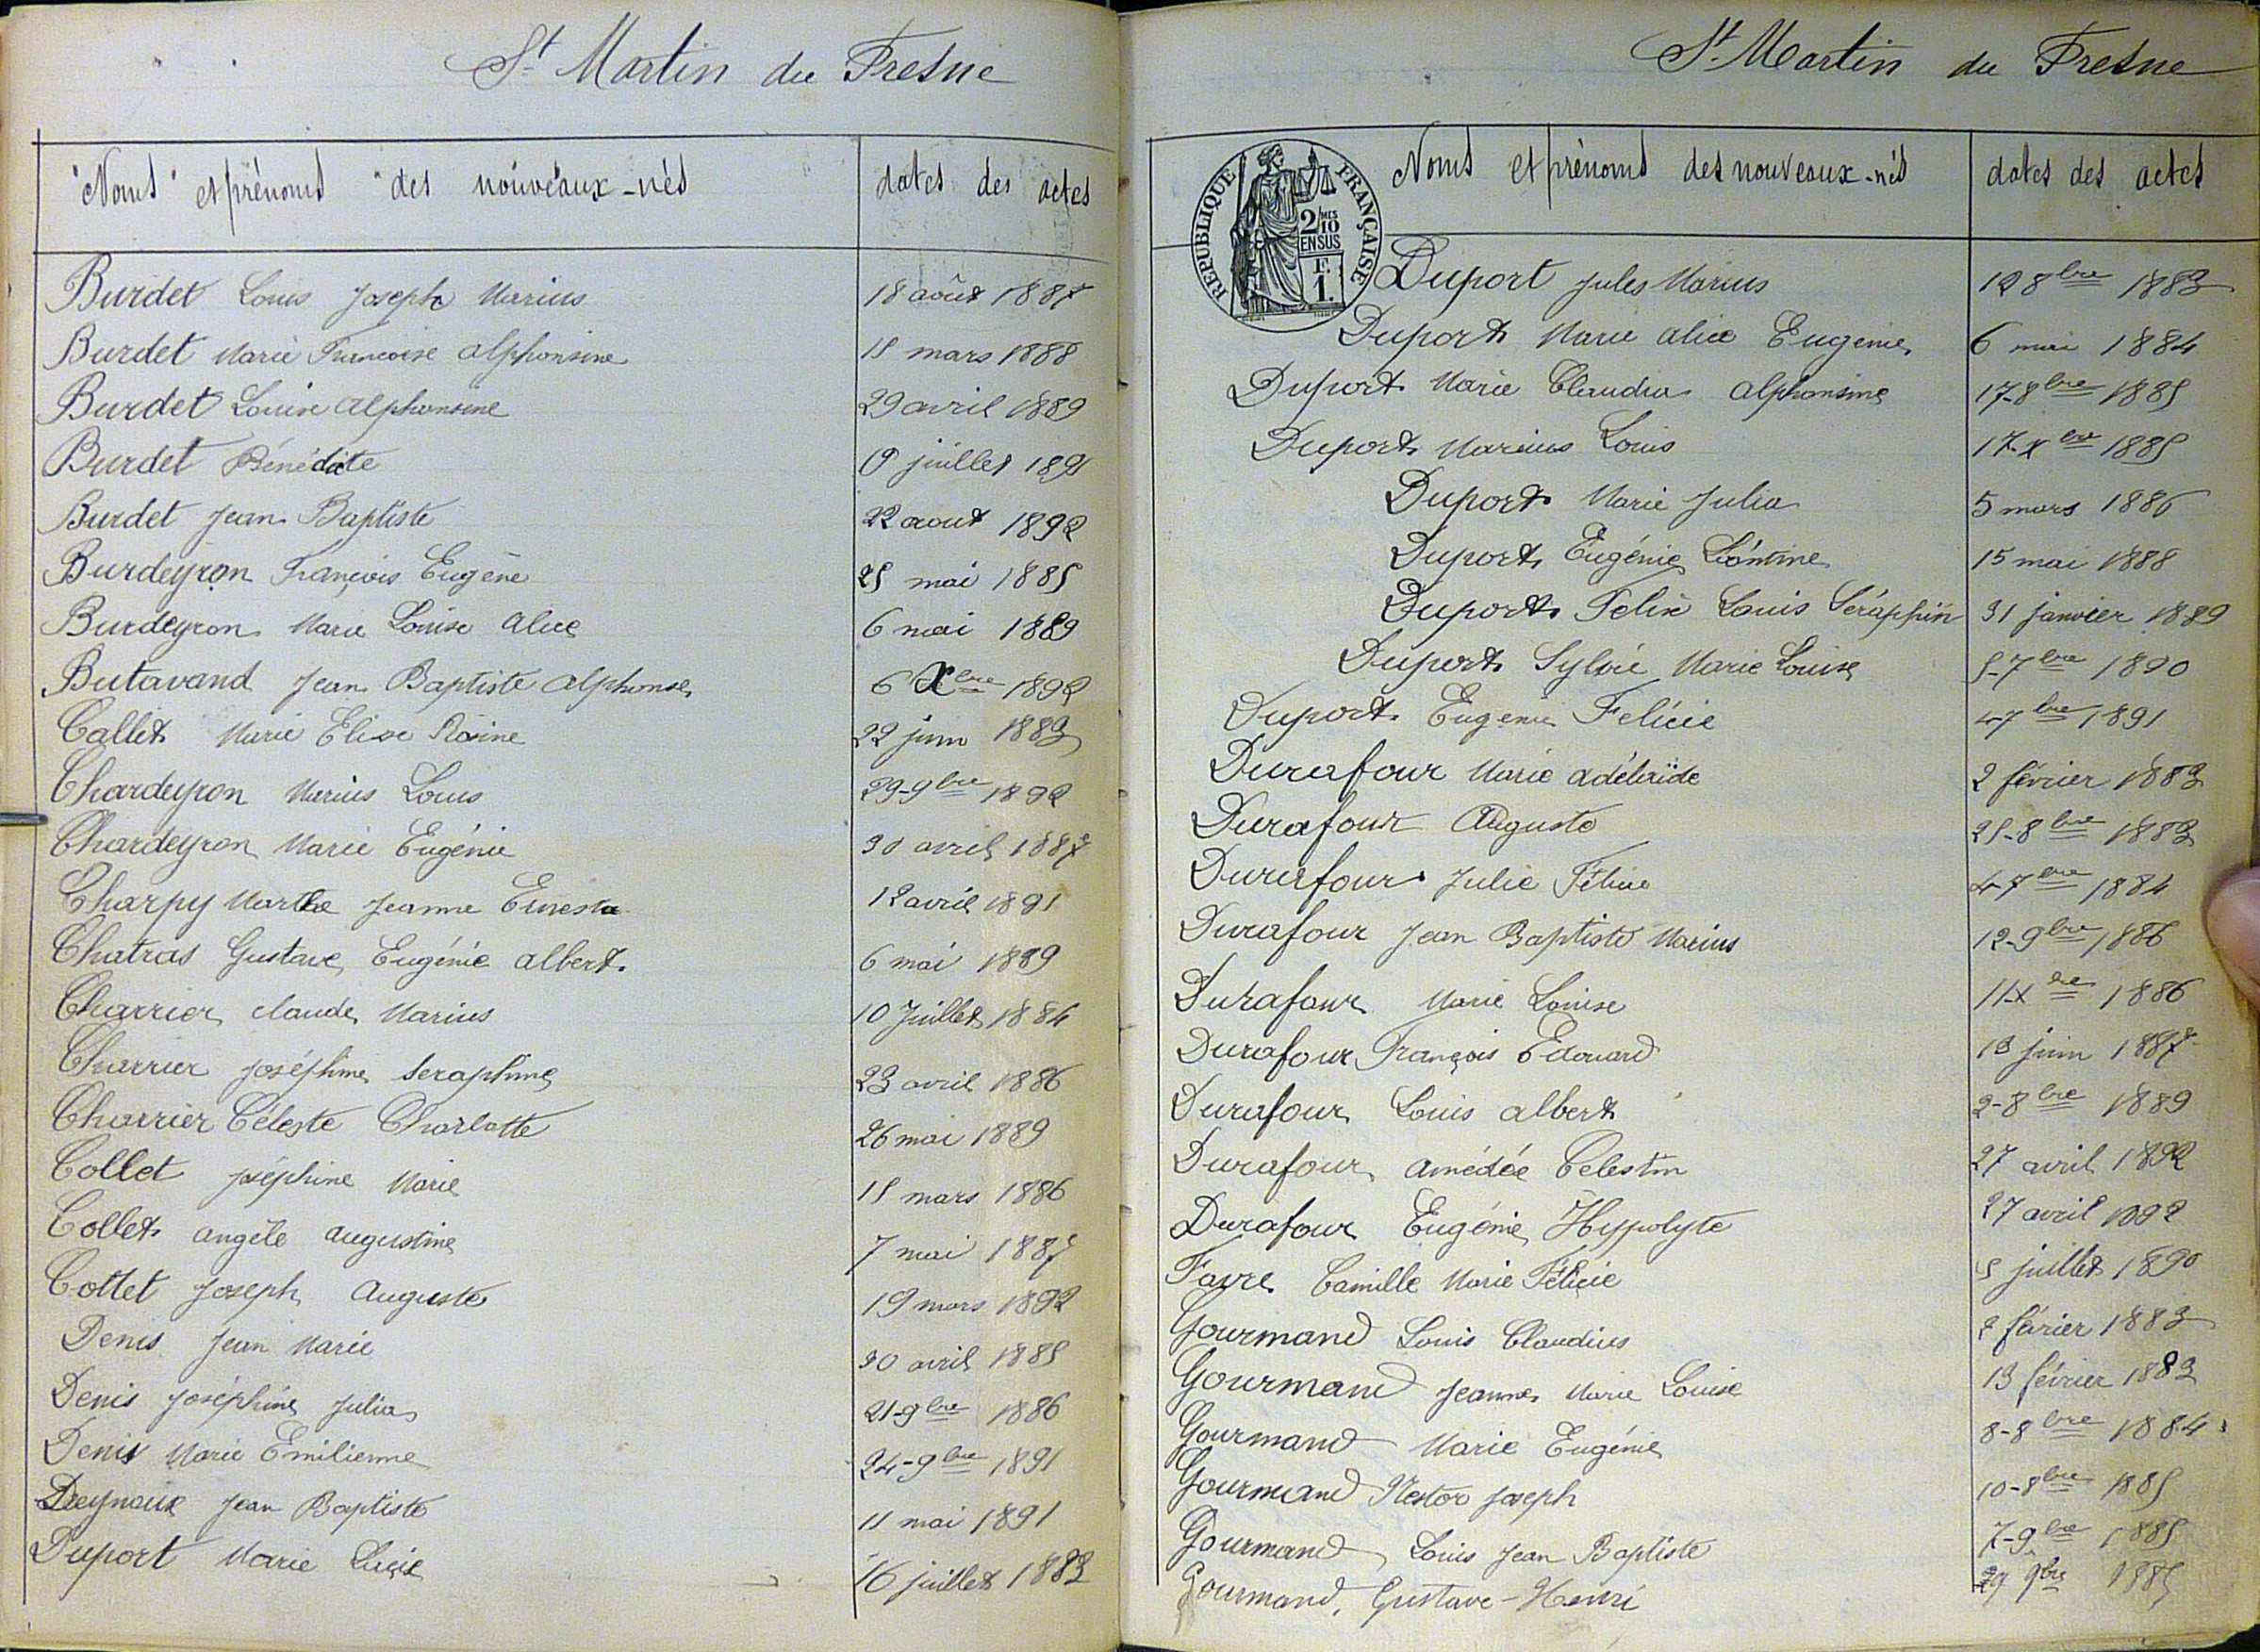 St Martin du Fresne
Noms et prénoms des nouveaux-nés dates des actes
Burdet Louis Joseph Marius 18 août 1887
Burdet Marie Francoise alphonsine 15 mars 1888
Burdet Louise alphonsine 29 avril 1889
Burdet Bénédicte juillet 1891
Burdet Jean Baptiste 22 aout 1892
Burdeyron François Eugène 25 mai 1885
Burdeyron Marie Louise alice 6 mai 1889
Butavand Jean Baptiste alphonse 6 Xbre 1892
Callet Marie Elise Rosine 22 juin 1883
Chardeyron Marius Louis 29-9bre 1892
Chardeyron Marie Eugénie 30 avril 1887
Charpy Marthe Jeanne Ernesta 12 avril 1891
Chatras Gustave Eugénie albert 6 mai 1889
Charrier claude Marius 10 Juillet 1884
Charrier joséphine Seraphine 23 avril 1886
Charrier Céleste Charlotte 26 mai 1889
Collet joséphine Marie 15 mars 1886
Collet angèle augustine 7 mai 1887
Collet Joseph Auguste 19 mars 1892
Denis Jean Marie 30 avril 1885
Denis Joséphine Julia 21-9bre 1886
Denis Marie Emilienne 24-9bre 1891
Deynoux Jean Baptiste 11 mai 1891
Duport Marie Lucie 16 juillet 1883
St Martin du Fresne
REPUBLIQUE FRANÇAISE
2/10 MES
EN SUS
F.
1.
Noms et prénoms des nouveaux-nés dates des actes
Duport Jules Marius 12 8bre 1883
Duport Marie alice Eugenie 6 mai 1884
Duport Marie Claudia alphonsine 17-8bre 1885
Duport Marius Louis 17-Xbre 1885
Duport Marie Julia 5 mars 1886
Duport Eugénie Léontine 15 mai 1888
Duport Felix Louis Séraphin 31 janvier 1889
Duport Sylvie Marie Louise 5-7bre 1890
Duport Eugenie Felicie 4-7bre 1891
Durafour Marie adélaïde 2 février 1883
Durafour Auguste 25-8bre 1883
Durafour Julie Féline 4-7bre 1884
Durafour Jean Baptiste Marius 12-9bre 1886
Durafour Marie Louise 11-Xbre 1886
Durafour François Edouard 13 juin 1887
Durafour Louis albert 2-8bre 1889
Durafour amédée Celestin 27 avril 1892
Durafour Eugénie Hyppolyte 27 avril 1892
Favre Camille Marie Félicie 5 juillet 1890
Gourmand Louis Claudius 2 février 1883
Gourmand Jeanne Marie Louise 13 février 1883
Gourmand Marie Eugénie 8-8bre 1884
Gourmand Nestor Joseph 10-8bre 1885
Gourmand Louis Jean Baptiste 7-9bre 1885
Gourmand, Gustave-Henri 29 9bre 1885